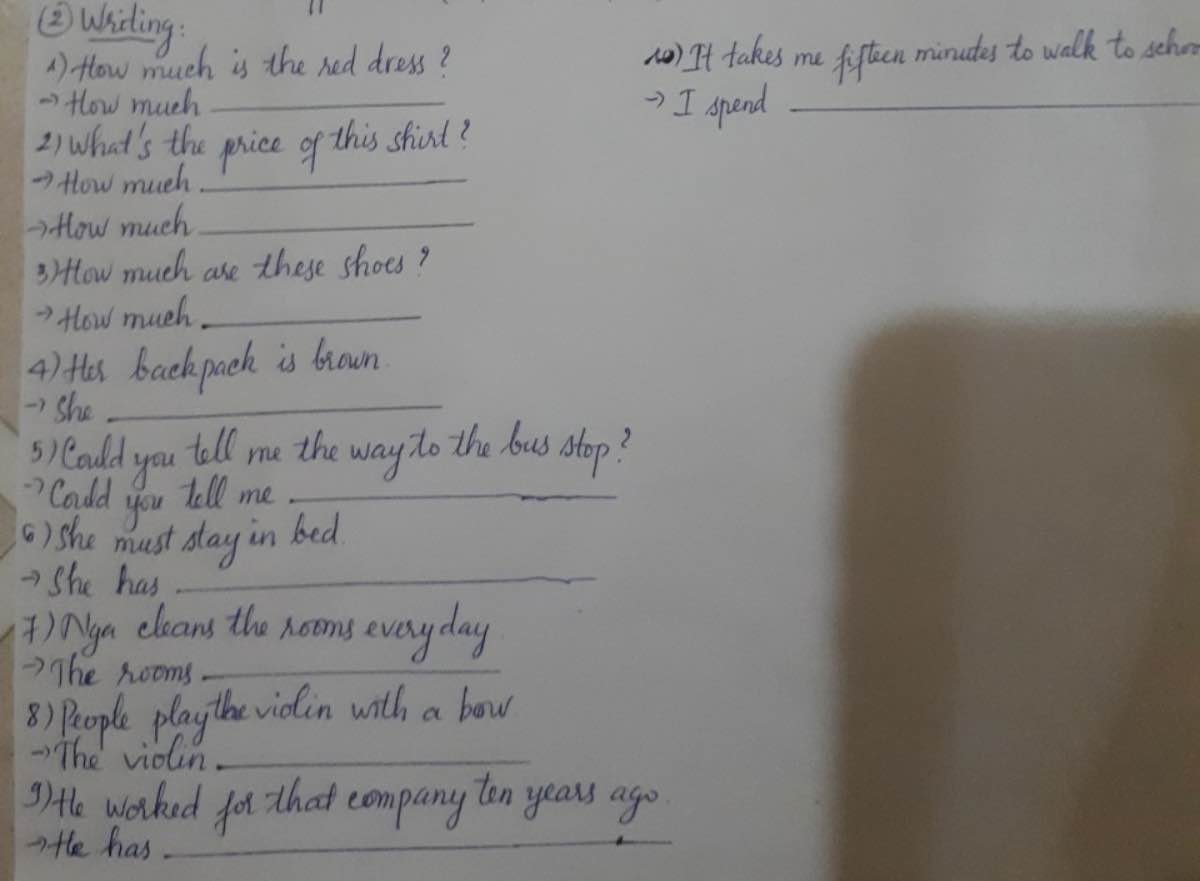 ② Writing:
1) How much is the red dress?
→ How much
2) What's the price of this shirt?
→ How much
→ How much
3) How much are these shoes?
→ How much
4) Her backpack is brown.
→ She
5) Could you tell me the way to the bus stop?
→ Could you tell me
6) She must stay in bed.
→ She has
7) Nga cleans the rooms everyday
→ The rooms
8) People play the violin with a bow
→ The violin
9) He worked for that company ten years ago.
→ He has
10) It takes me fifteen minutes to walk to schoo
→ I spend